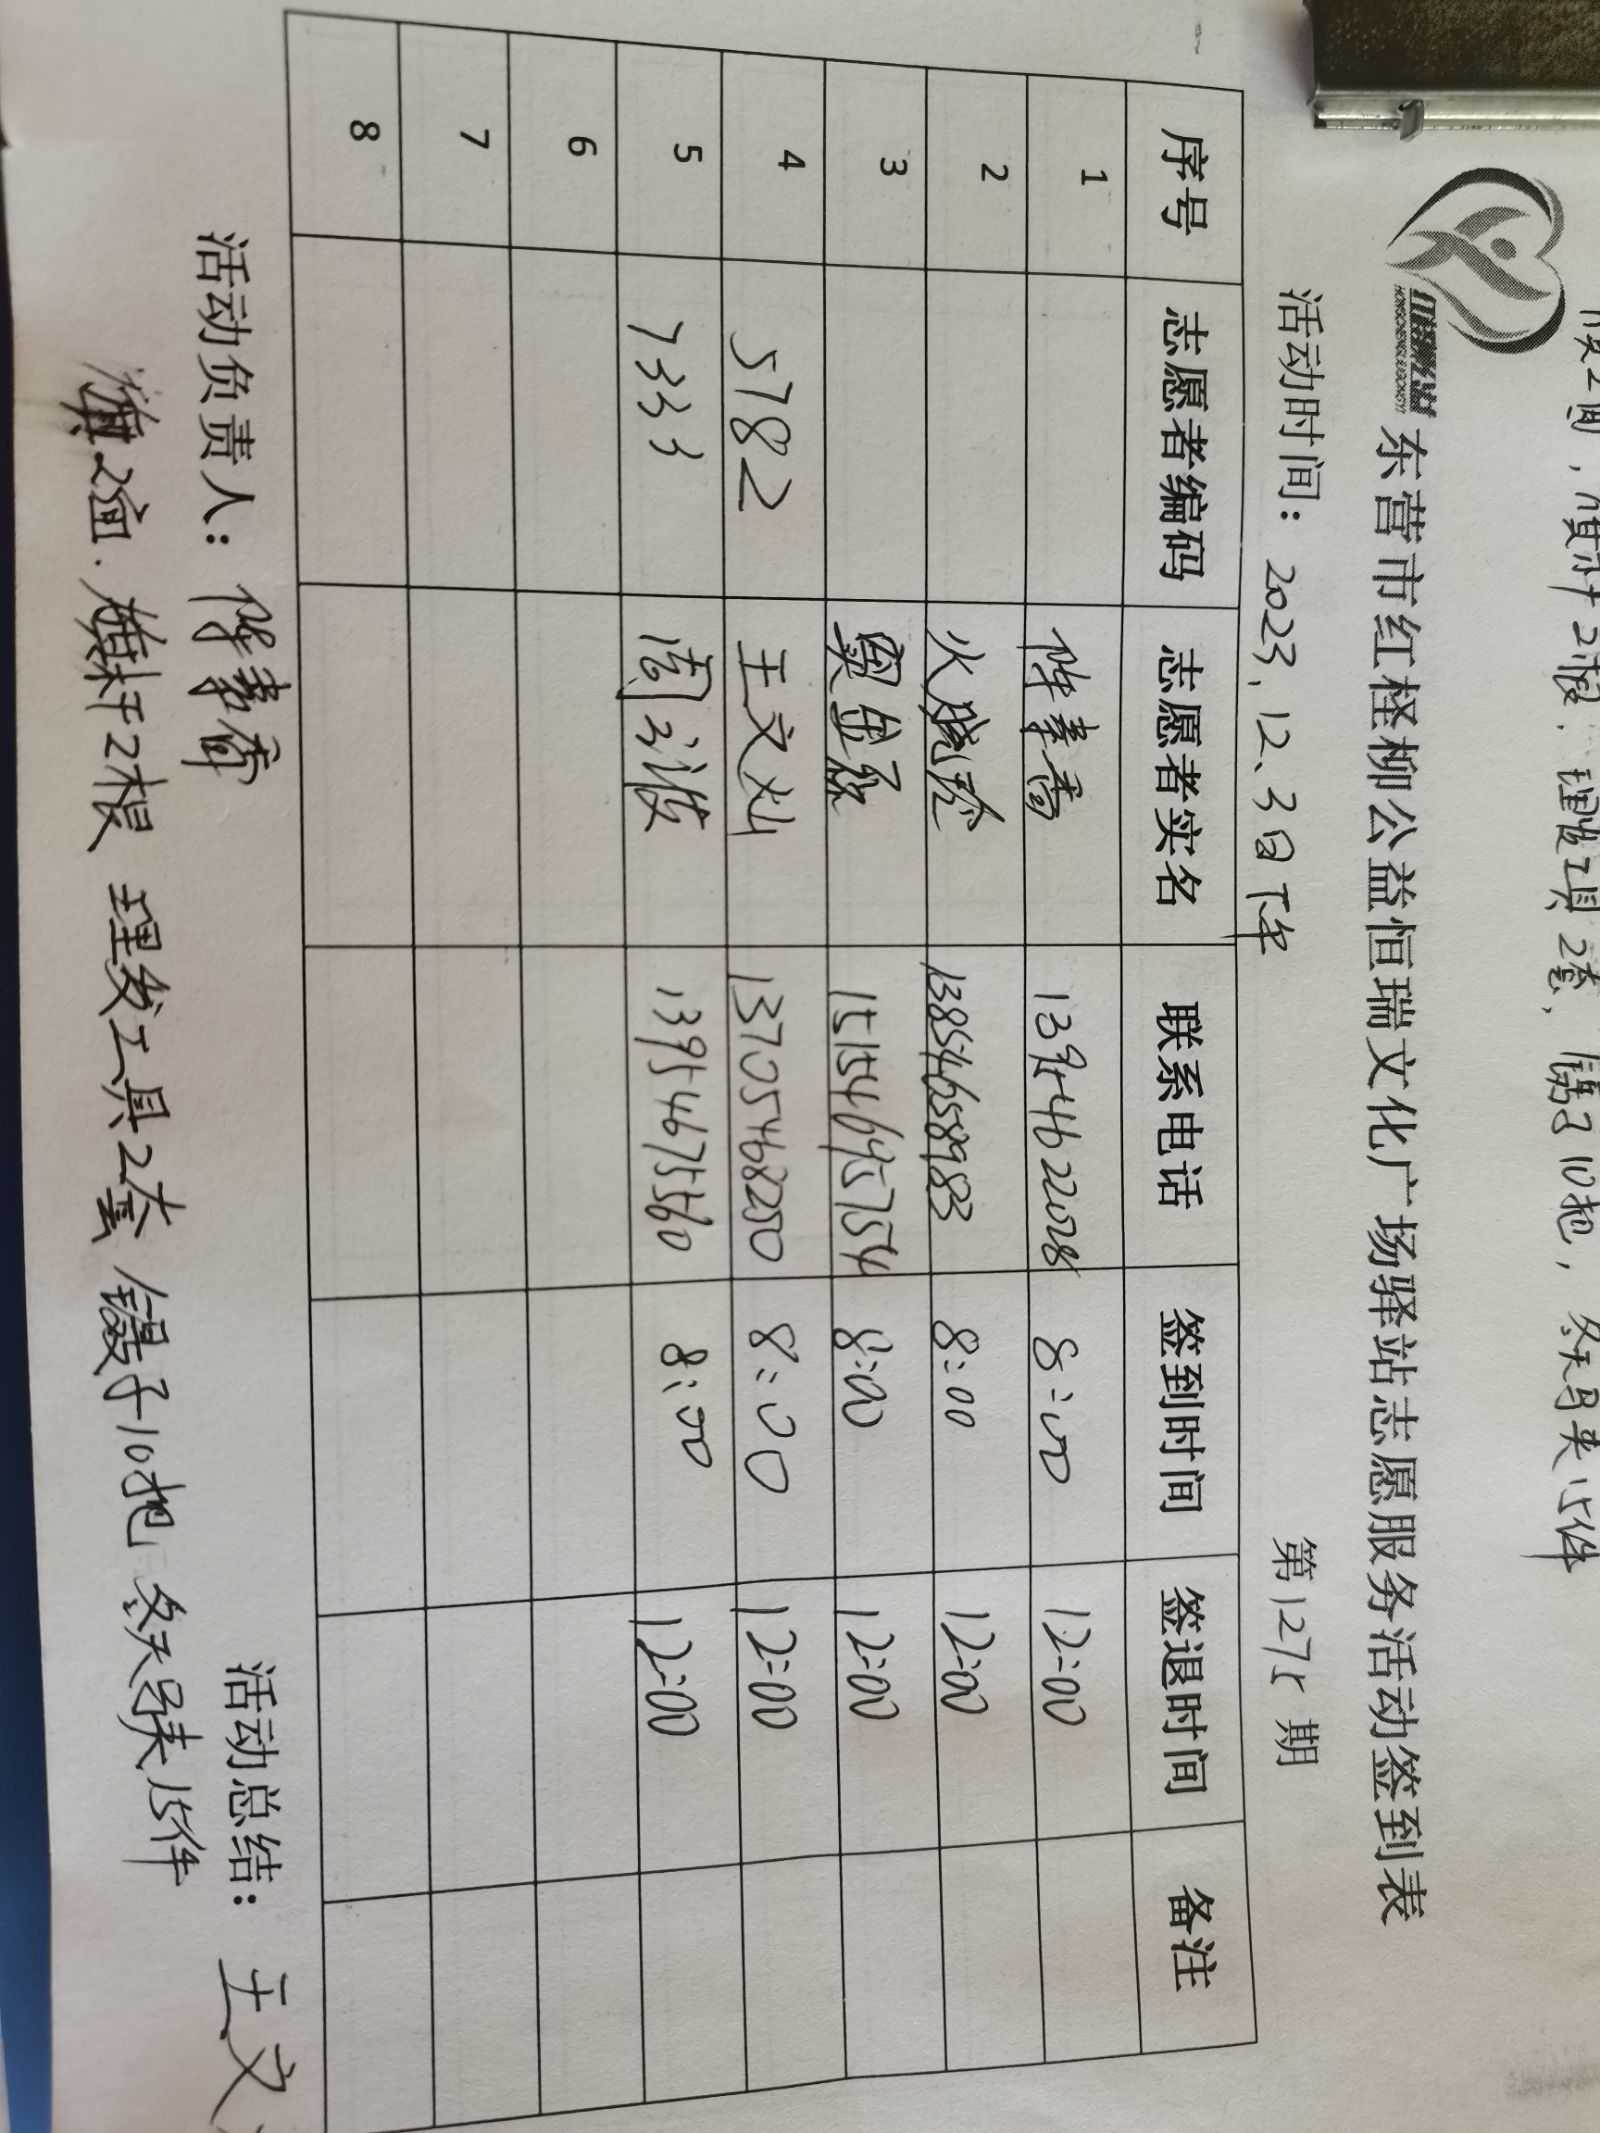 理发工具2套, 镘子10把, 冬天马夹15件
东营市红柽柳公益恒瑞文化广场驿站志愿服务活动签到表
活动时间: 2023、12、3日下午 第127期
序号 志愿者编码 志愿者实名 联系电话 签到时间 签退时间 备注
1 8:00 12:00
2 13854658983 8:00 12:00
3 15154695754 8:00 12:00
4 5782 王文灿 13705468250 8:00 12:00
5 7333 周 13954675560 8:00 12:00
6
7
8
活动负责人: 活动总结: 王文
旗2面. 旗杆2根 理发工具2套 镘子10把 冬天马夹15件